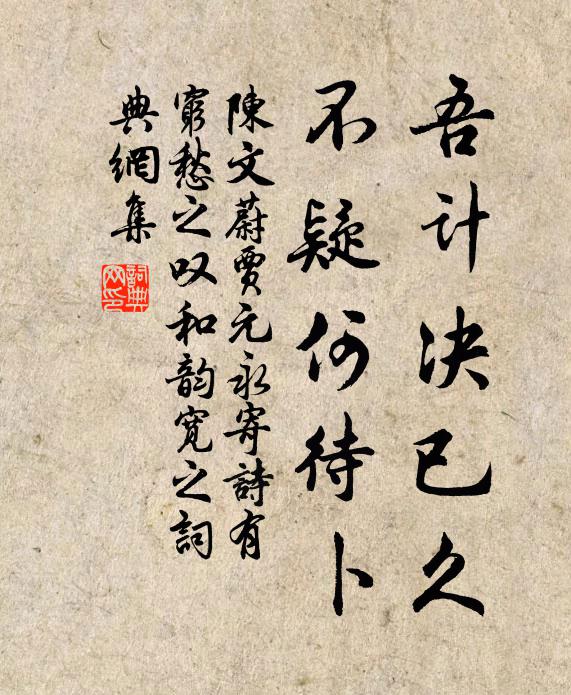 吾计决已久
不疑何待卜
陳文蔚賈元永寄詩有
窮愁之叹和韵寬之詞
典網集
詞典网印